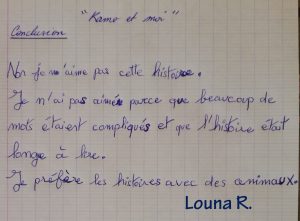 "Kamo et moi"
Conclusion
Non je n'aime pas cette histoire.
Je n'ai pas aimée parce que beaucoup de
mots étaient compliqués et que l'histoire était
longe à lire.
Je préfère les histoires avec des animaux.
Louna R.